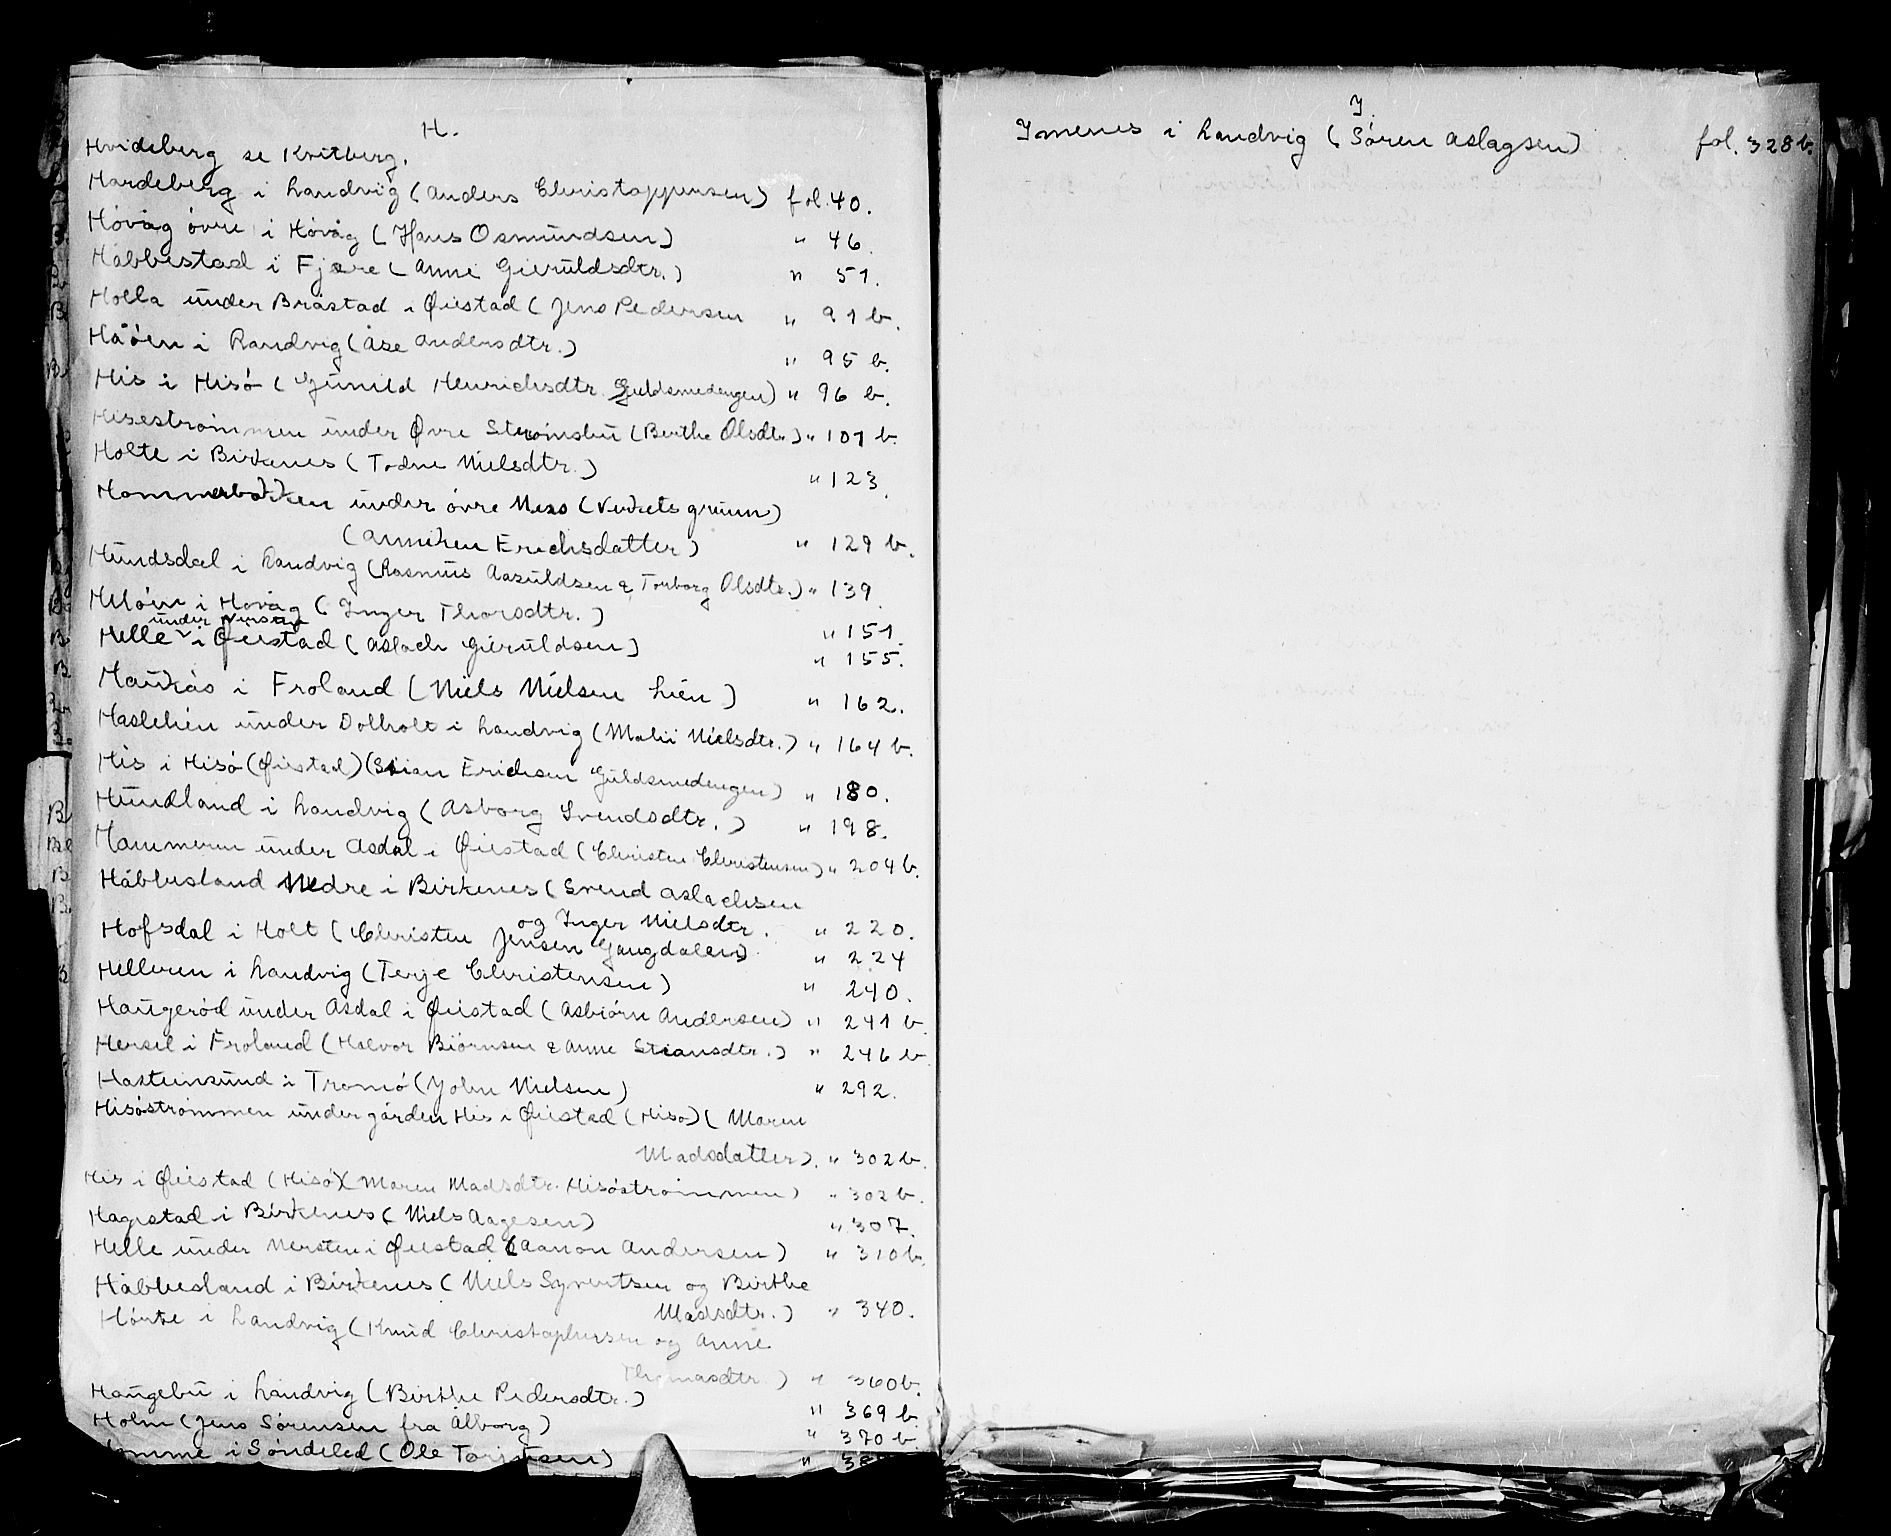 H.
Hvideberg se Kvitberg.
Hardeberg i Landvig (Anders Christoppersen) fol. 40.
Høvåg øvre i Høvåg (Hans Osmundsen) " 46.
Håbbestad i Fjære (Anne Gieruldsdtr.) " 51.
Holla under Bråstad i Øiestad (Jens Pedersen " 91 b.
Håøen i Landvig (Åse Andersdtr.) " 95 b.
His i Hisø (Gunild Henrichsdtr. Guldsmedengen) " 96 b.
Hisestrømmen under Øvre Strømsbu (Berthe Olsdtr.) " 101 b.
Holte i Birkenes (Todne Nielsdtr.) " 123.
Hommerbakken under øvre Næs (Verkets grunn)
(Anniken Erichsdatter) " 129 b.
Hundsdal i Landvig (Rasmus Aasuldsen & Torborg Olsdtr.) " 139.
Heløen i Høvåg (Inger Thorsdtr.) " 151.
Helle under Nersten i Øiestad (Aslach Gieruldsen) " 155.
Haukås i Froland (Niels Nielsen Lien) " 162.
Haslelien under Dolholt i Landvig (Malii Nielsdtr.) " 164 b.
His i Hisø (Øiestad) (Stian Erichsen Guldsmedengen) " 180.
Hundland i Landvig (Asborg Svendsdtr.) " 198.
Hammeren under Asdal i Øiestad (Christen Christensen) " 204 b.
Håbbesland Nedre i Birkenes (Svend Aslachsen
og Inger Nielsdtr. " 220.
Hofsdal i Holt (Christen Jensen Gaugdalen) " 224
Helleren i Landvig (Terje Christensen) " 240.
Haugerød under Asdal i Øiestad (Asbiørn Andersen) " 241 b.
Hersel i Froland (Halvor Biørnsen & Anne Stiansdtr.) " 246 b
Hastensund i Tromø (John Nielsen) " 292.
Hisøstrømmen under gården His i Øiestad (Hisø) (Maren
Madsdatter). " 302 b.
His i Øiestad (Hisø) (Maren Madsdtr. Hisøstrømmen) " 302 b.
Hagestad i Birkenes (Niels Aagesen) " 307.
Helle under Nersten i Øiestad (Aanon Andersen) " 310 b.
Håbbesland i Birkenes (Niels Syvertsen og Birthe
Madsdtr.) " 340.
Hørte i Landvig (Knud Christophersen og Anne
Thomasdtr.) " 360 b.
Haugebu i Landvig (Birthe Pedersdtr.) " 369 b.
Holm (Jens Sørensen fra Ålborg) " 370 b.
i Søndeled (Ole Torjusen) "
I.
Imenes i Landvig (Søren Aslagsen) fol. 328 b.